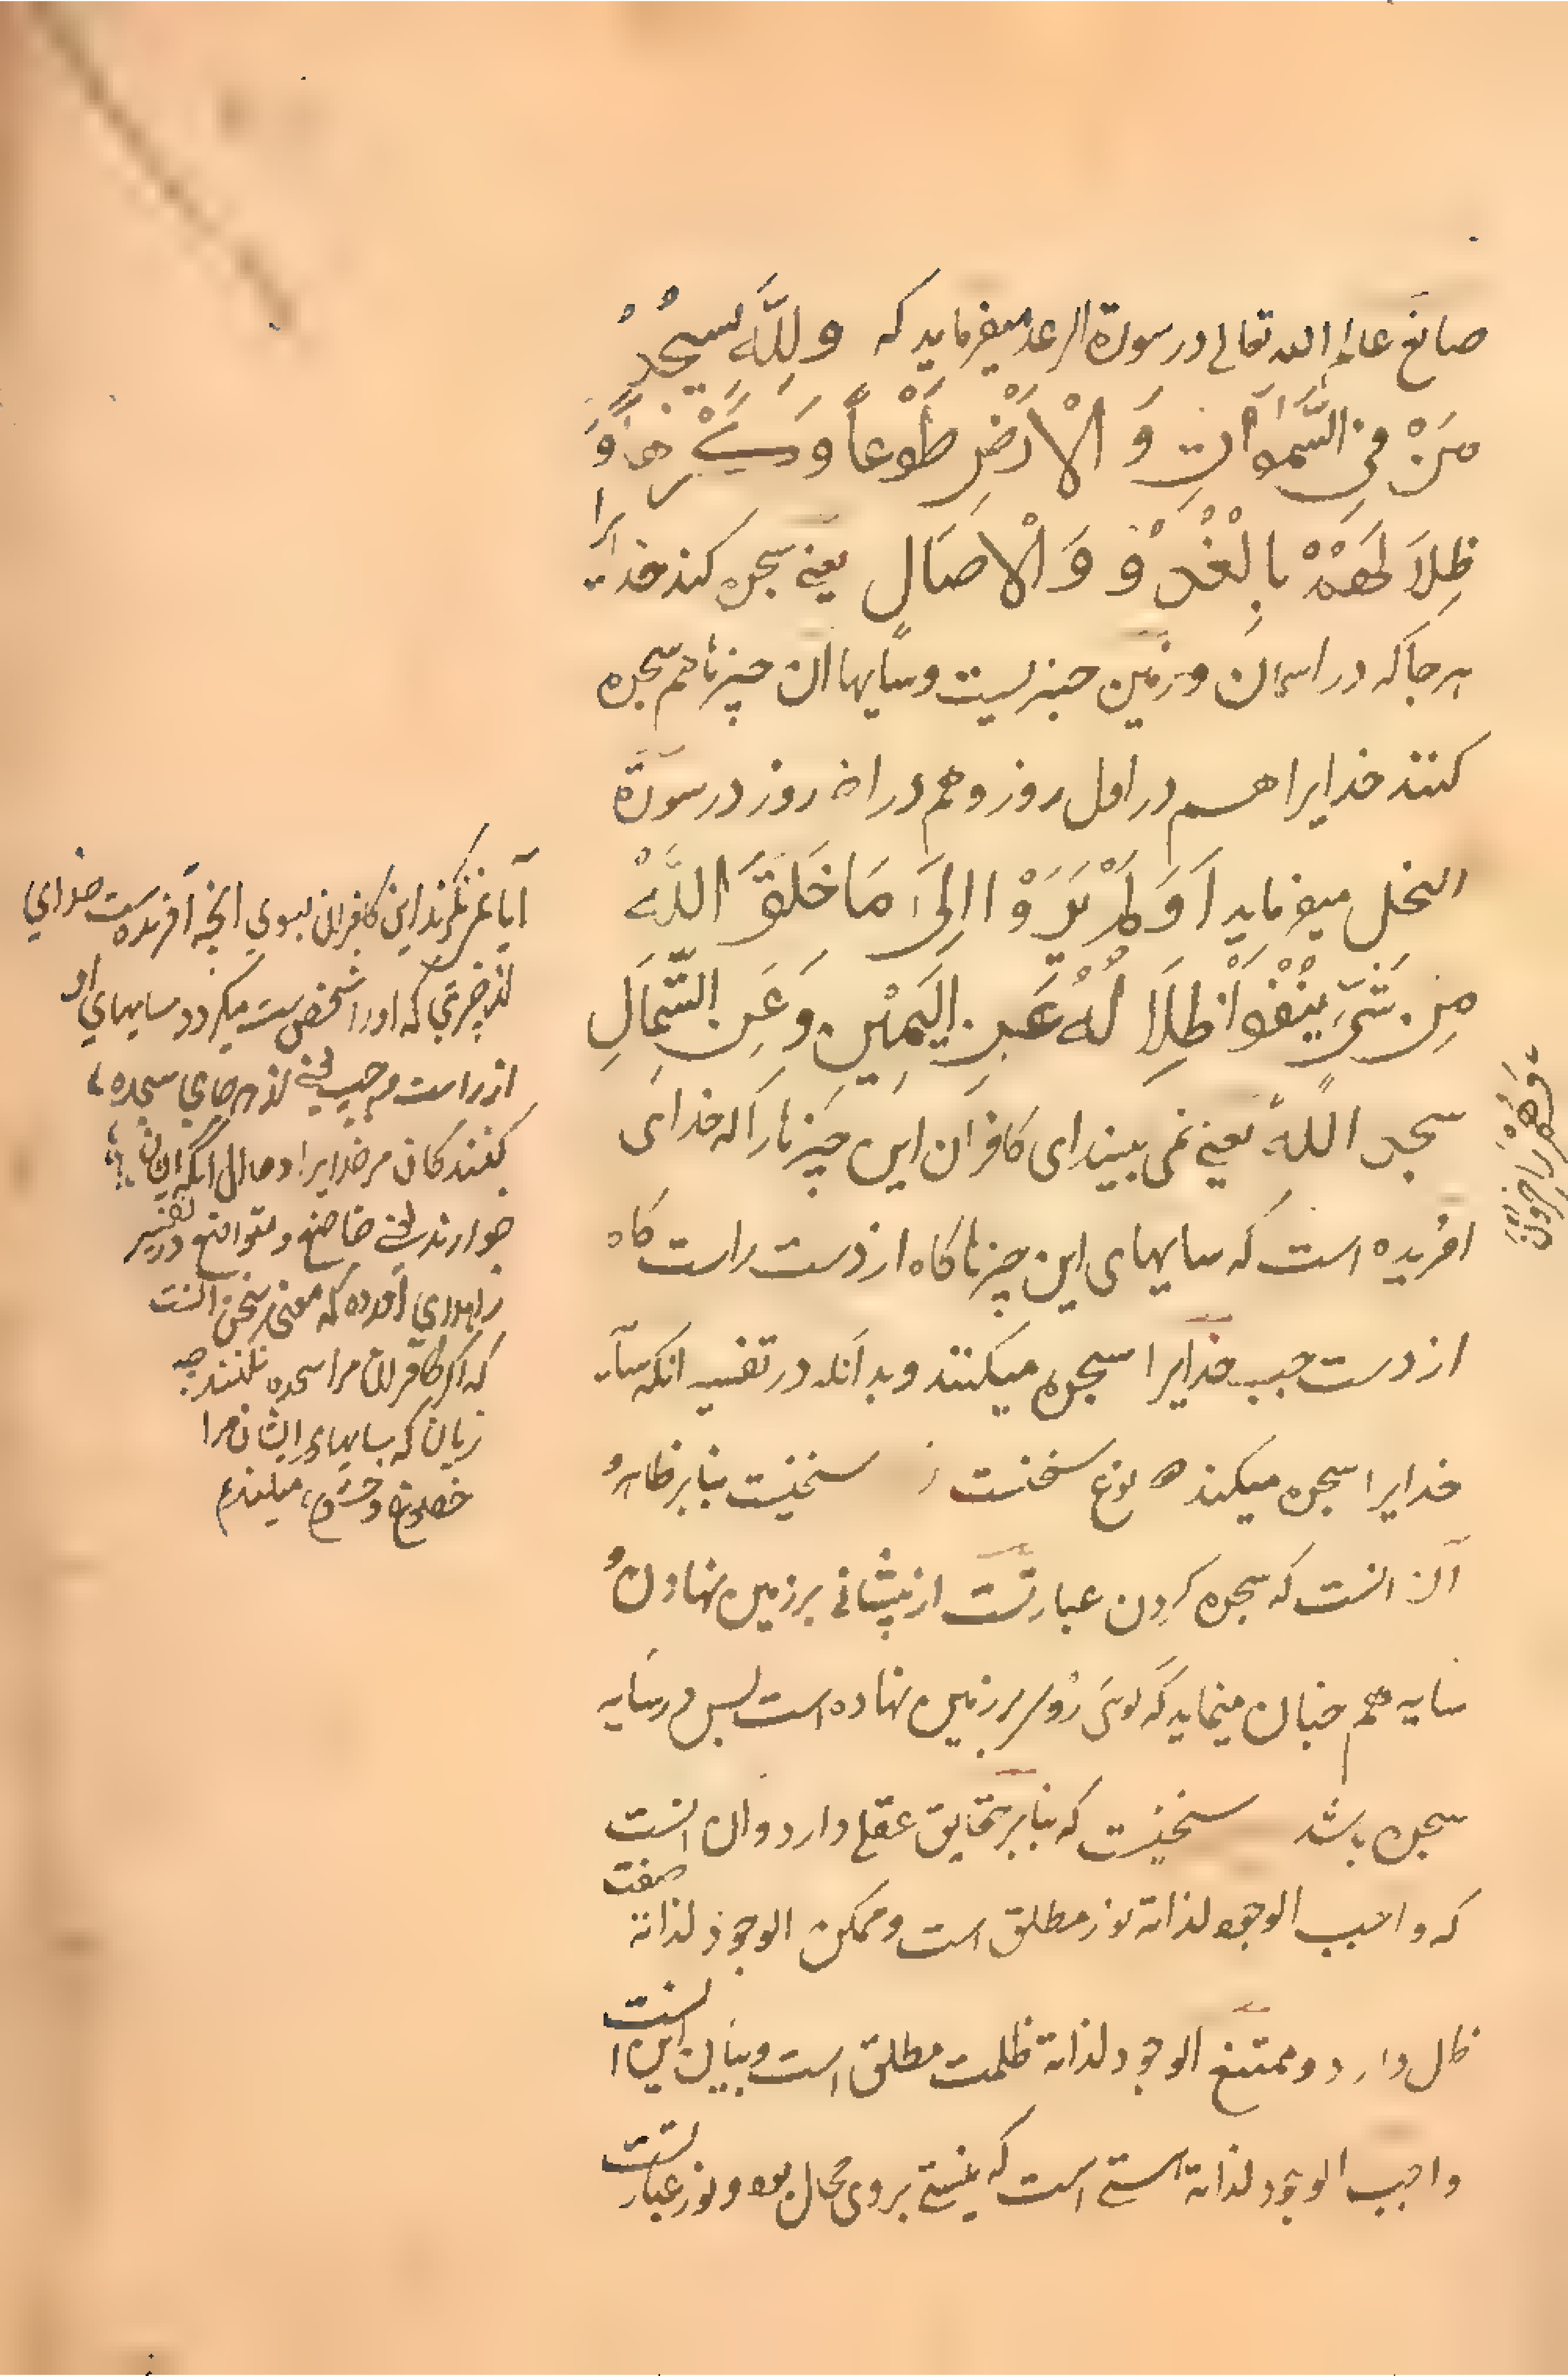 صانع عالم الله تعالی در سورة الرعد میفرماید که وَلِلّٰهِ یَسْجُدُ
مَنْ فِی السَّمٰوَاتِ وَ الْاَرْضِ طَوْعاً وَ كَرْهاً وَّ
ظِلَالُهُمْ بِالْغُدُوِّ وَ الْاٰصَالِ یعنی سجده کند خدایرا
هرجا که در اسمان و زمین چیزیست و سایها ان چیزها هم سجده
کنند خدایرا هم در اول روز و هم در اخر روز در سورة
النحل میفرماید اَوَلَمْ یَرَوْا اِلیٰ مَا خَلَقَ اللّٰهُ
مِنْ شَیْءٍ یَتَفَیَّؤُا ظِلَالُهُ عَنِ الیَمِیْنِ وَ عَنِ الشِّمَالِ
سجد اللّٰه یعنی نمی بیند ای کافران این چیزها را که خدای
افریده است که سایهای این چیزها کاه از دست راست کاه
از دست چپ خدایرا سجده میکنند و بدانکه در تفسیر انکه سایه
خدایرا سجده میکند دو نوع سخنست سخنیست بنابر ظاهر و
آن انست که سجده کردن عبارتست از پیشانی بر زمین نهادن و
سایه هم چنان مینماید که گوی رو بر زمین نهاده است پس در سایه
سجده باشد سخنیست که بنابر تحقیق عقلی دارد و ان انست
که واجب الوجود لذاته نور مطلق است و ممکن الوجود لذاته صفت
ظل دارد و ممتنع الوجود لذاته ظلمت مطلق است و بیان این انست
واجب الوجود لذاته هستی است که نیستی بروی محال بود و نور عبارتست
وَهُمْ دَاخِرُونَ
آیا نمی نگرند این کافران بسوی انچه آفریده است خدای
از چیزی که او را شخص ست میکردد سایهای او
از راست و چپ یعنی از هر جای سجده
کنندکان مر خدایرا و حال انکه ایشان
خوارند یعنی خاضع و متواضع در تفسیر
زاهدی آورده که معنی سخن انست
که اکر کافران مرا سجده نکنند چه
زیان که سایهای ایشان مرا
خضوع و خشوع میکنند